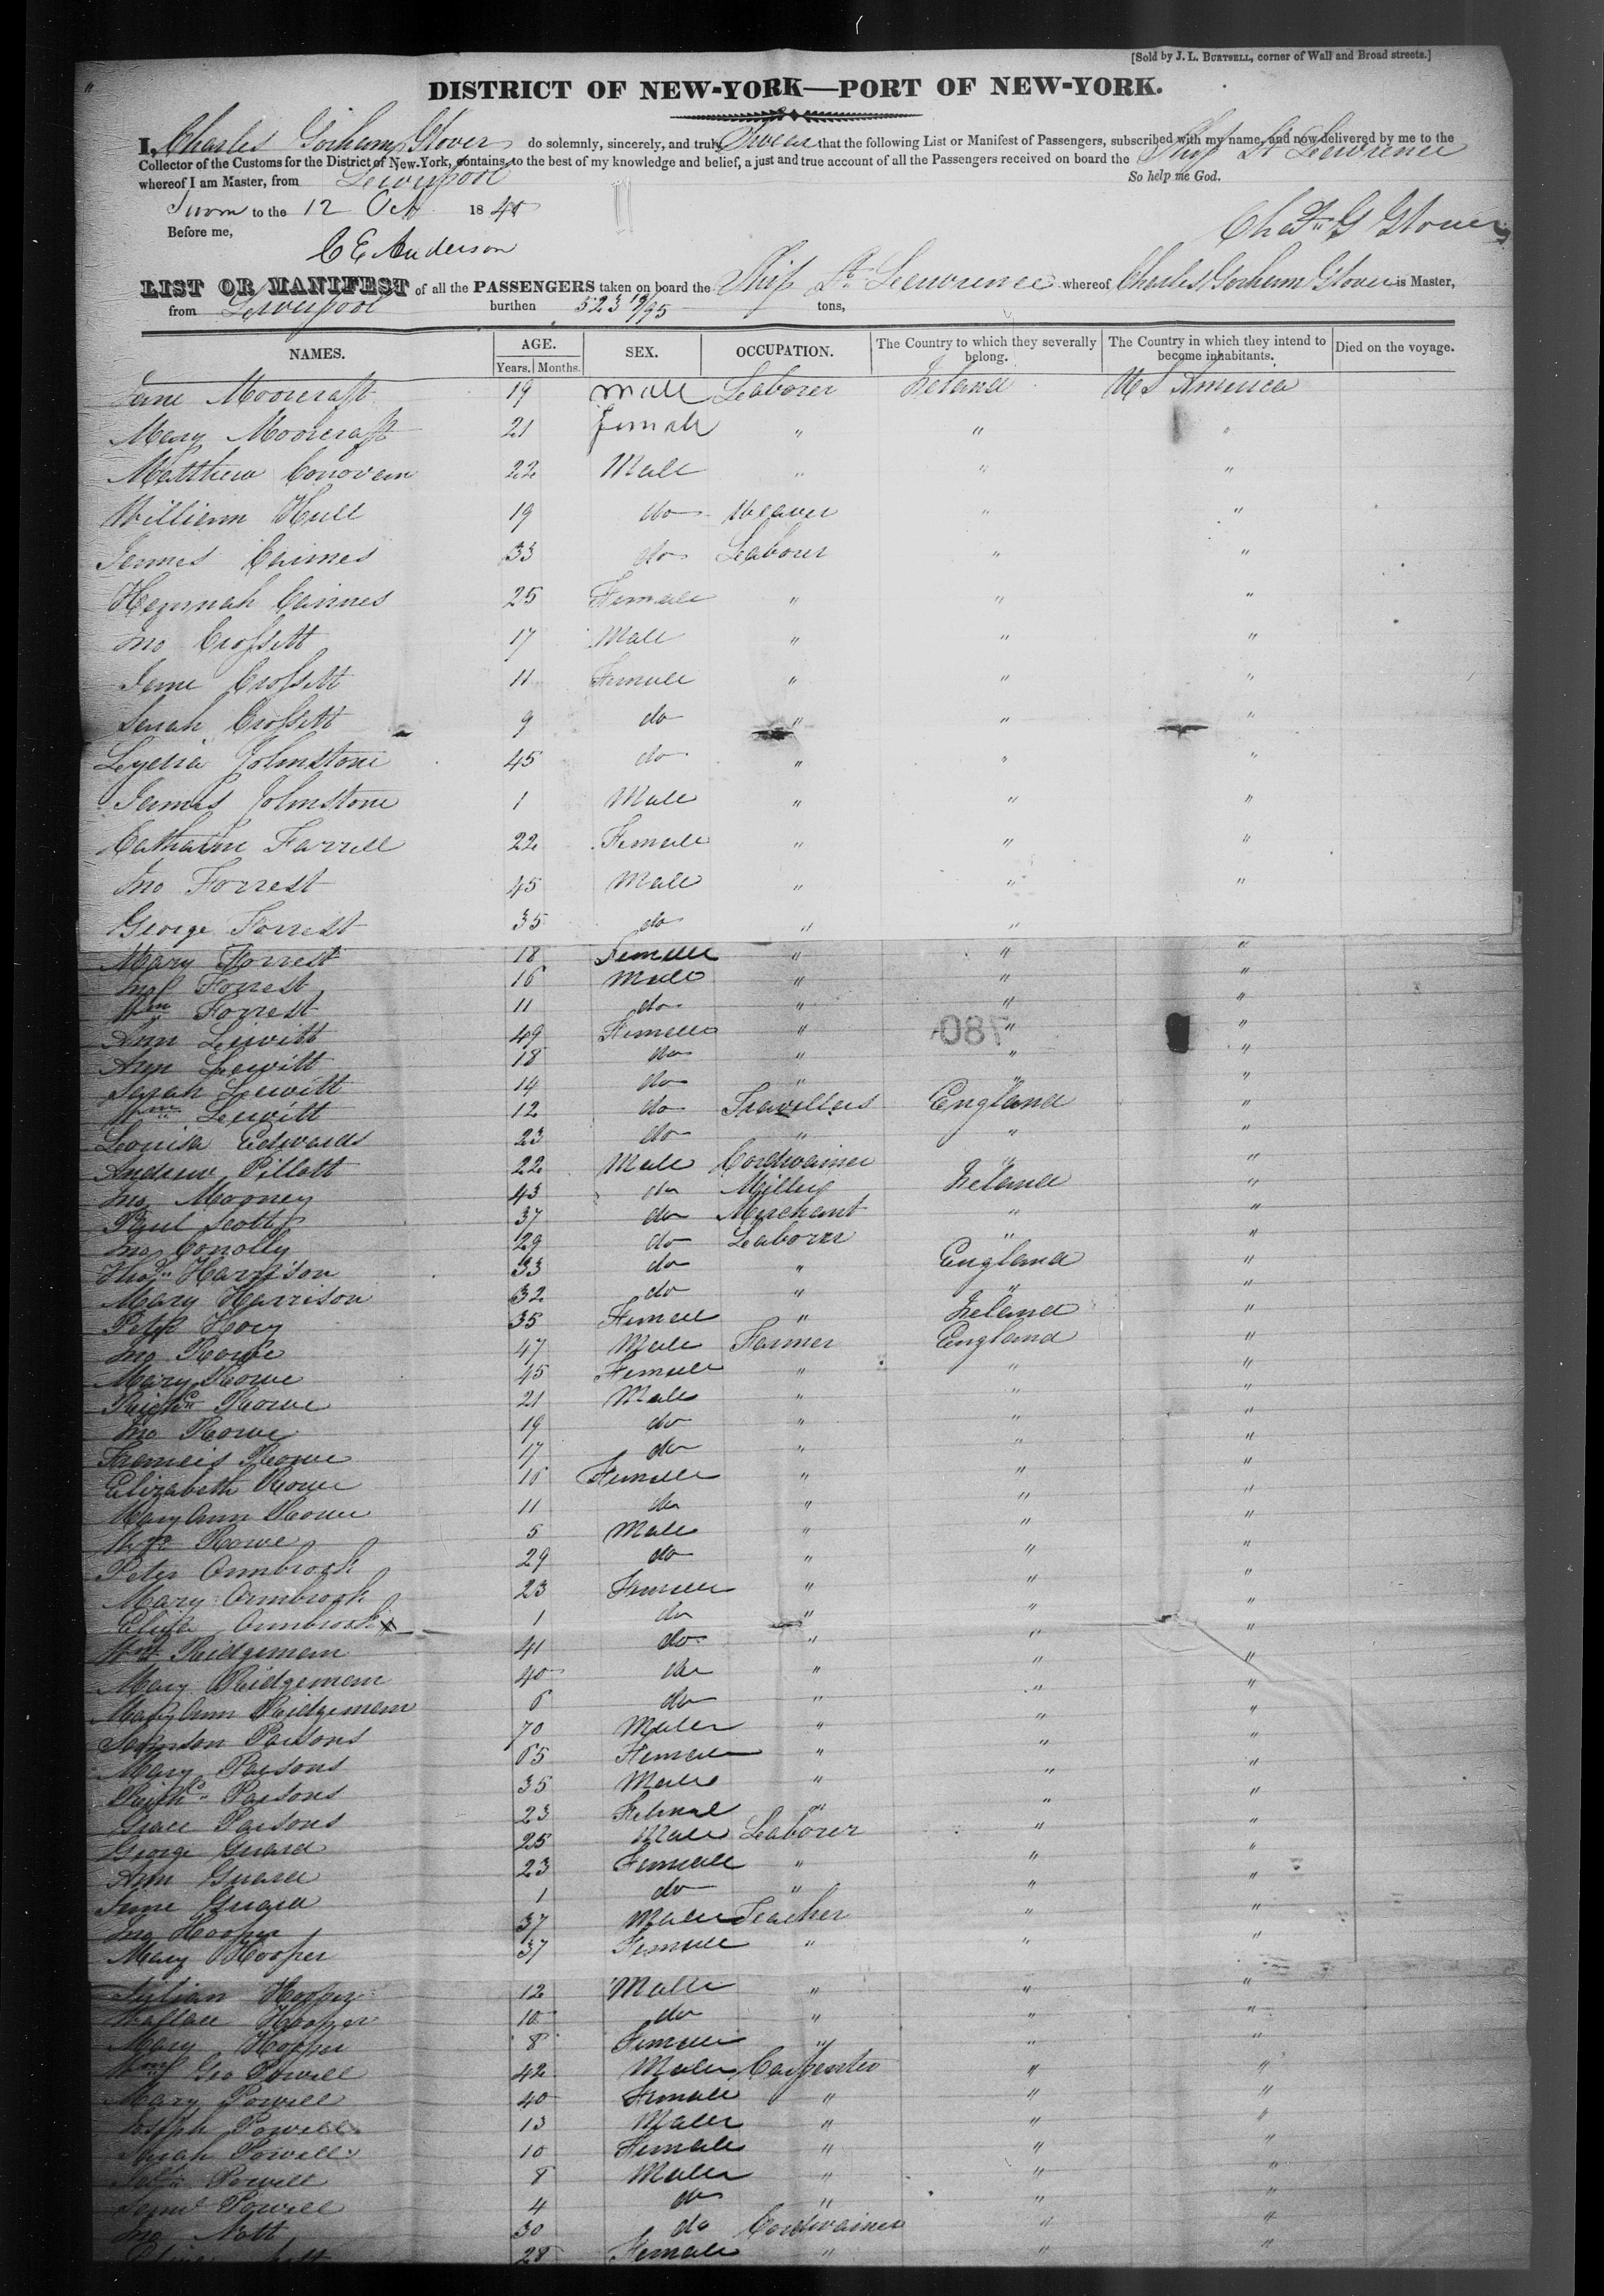 [Sold by J. L. BURTSELL, corner of Wall and Broad streets.]
DISTRICT OF NEW-YORK—PORT OF NEW-YORK.
I, Charles Gorham Glover do solemnly, sincerely, and truly Swear that the following List or Manifest of Passengers, subscribed with my name, and now delivered by me to the
Collector of the Customs for the District of New-York, contains, to the best of my knowledge and belief, a just and true account of all the Passengers received on board the Ship St Lawrence
whereof I am Master, from Liverpool So help me God.
Sworn to the 12 Oct 18
Before me, Chas G Glover
C E Anderson
LIST OR MANIFEST of all the PASSENGERS taken on board the Ship St Lawrence whereof Charles Gorham Glover is Master,
from Liverpool burthen 523 19/95 tons,
NAMES. AGE. Years. Months. SEX. OCCUPATION. The Country to which they severally belong. The Country in which they intend to become inhabitants. Died on the voyage.
Jane Moorcraft 19 Male Laborer Ireland U S America
Mary Moorcraft 21 Female " " "
Matthew Conovan 22 Male " " "
William Hull 19 do Weaver " "
James Cairnes 33 do Laborer " "
Hannah Cairnes 25 Female " " "
Jno Crossett 17 Male " " "
Jane Crossett 11 Female " " "
Sarah Crossett 9 do " " "
Lydia Johnstone 45 do " " "
James Johnstone 1 Male " " "
Catharine Farrell 22 Female " " "
Jno Forrest 45 Male " " "
George Forrest 35 do " "
Mary Forrest 18 Female " " "
Forrest 16 Male " " "
Wm Forrest 11 do " " "
Ann Lewitt 49 Female " " "
Ann Lewitt 18 do " " "
Sarah Lewitt 14 do " " "
Wm Lewitt 12 do Travellers England "
Louisa Edwards 23 do " " "
Andrew Pillatt 22 Male Cordwainer " "
Jno Mooney 43 do Miller Ireland "
Paul Scott 37 do Merchant " "
Jno Conolly 29 do Laborer " "
Thos Harrison 33 do " England "
Mary Harrison 32 do " " "
Peter 35 Female " Ireland "
Jno Rowe 47 Male Farmer England "
Mary Rowe 45 Female " " "
Richd Rowe 21 Male " " "
Jno Rowe 19 do " " "
Francis Rowe 17 do " " "
Elizabeth Rowe Female " " "
Mary Ann Rowe 11 do " " "
Wm Rowe 5 Male " " "
Peter Armbrook 29 do " " "
Mary Armbrook 23 Female " " "
Eliza Armbrook 1 do " " "
Wm Ridgeman 41 do " " "
Mary Ridgeman 40 do " " "
Mary Ann Ridgeman 6 do " " "
Sampson Parsons 70 Male " " "
Mary Parsons 65 Female " " "
Richd Parsons 35 Male " " "
Grace Parsons 23 Female " " "
George Guard 25 Male Laborer " "
Ann Guard 23 Female " " "
Jane Guard 1 do " " "
Jno Hooper 37 Male Teacher " "
Mary Hooper 37 Female " " "
Julian Hooper 12 Male " " "
Wallace Hooper 10 do " " "
Mary Hooper 8 Female " " "
Geo Powell 42 Male Carpenter " "
Mary Powell 40 Female " " "
Joseph Powell 13 Male " " "
Sarah Powell 10 Female " " "
Powell 8 Male " " "
Saml Powell 4 do " " "
Jno Nott 30 do Cordwainer " "
28 Female " " "